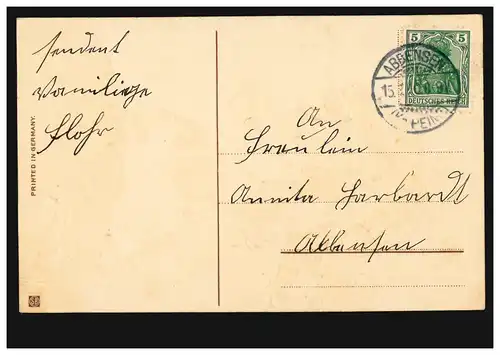 sendent
Vamiliege
Flohr
PRINTED IN GERMANY.
5 5
DEUTSCHES REICH
ABBENSEN
15.
PEINE
An
Fräulein
Annita Harbardt
Abbensen